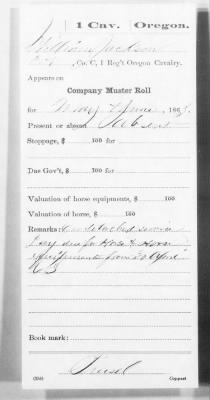 1 Cav. Oregon.
William Jackson
, Co. C, 1 Reg't Oregon Cavalry.
Appears on
Company Muster Roll
for May & June, 186
Present or absent Absent
Stoppage, $ 100 for
Due Gov't, $ 100 for
Valuation of horse equipments, $ 100
Valuation of horse, $ 100
Remarks: On detached service
Pay due for Horse & Horse
equipments from
Book mark:
(356) Copyist.